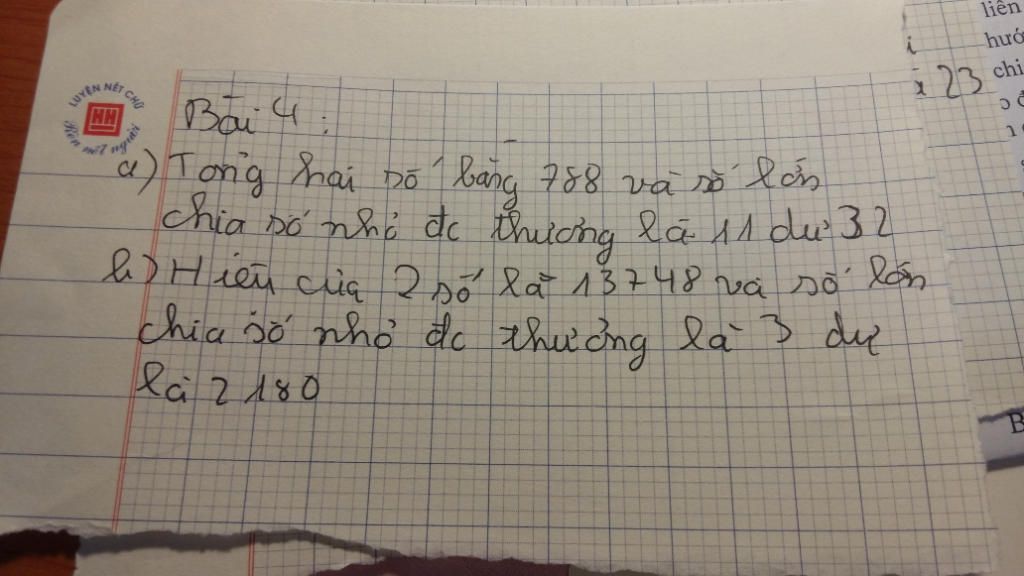 LUYỆN NÉT CHỮ
HH
Rèn nết người
Bài 4:
a) Tổng hai số bằng 788 và số lớn
chia số nhỏ đc thương là 11 dư 32
b) Hiệu của 2 số là 13748 và số lớn
chia số nhỏ đc thương là 3 dư
là 2180
23
liên
hướ
chi
B